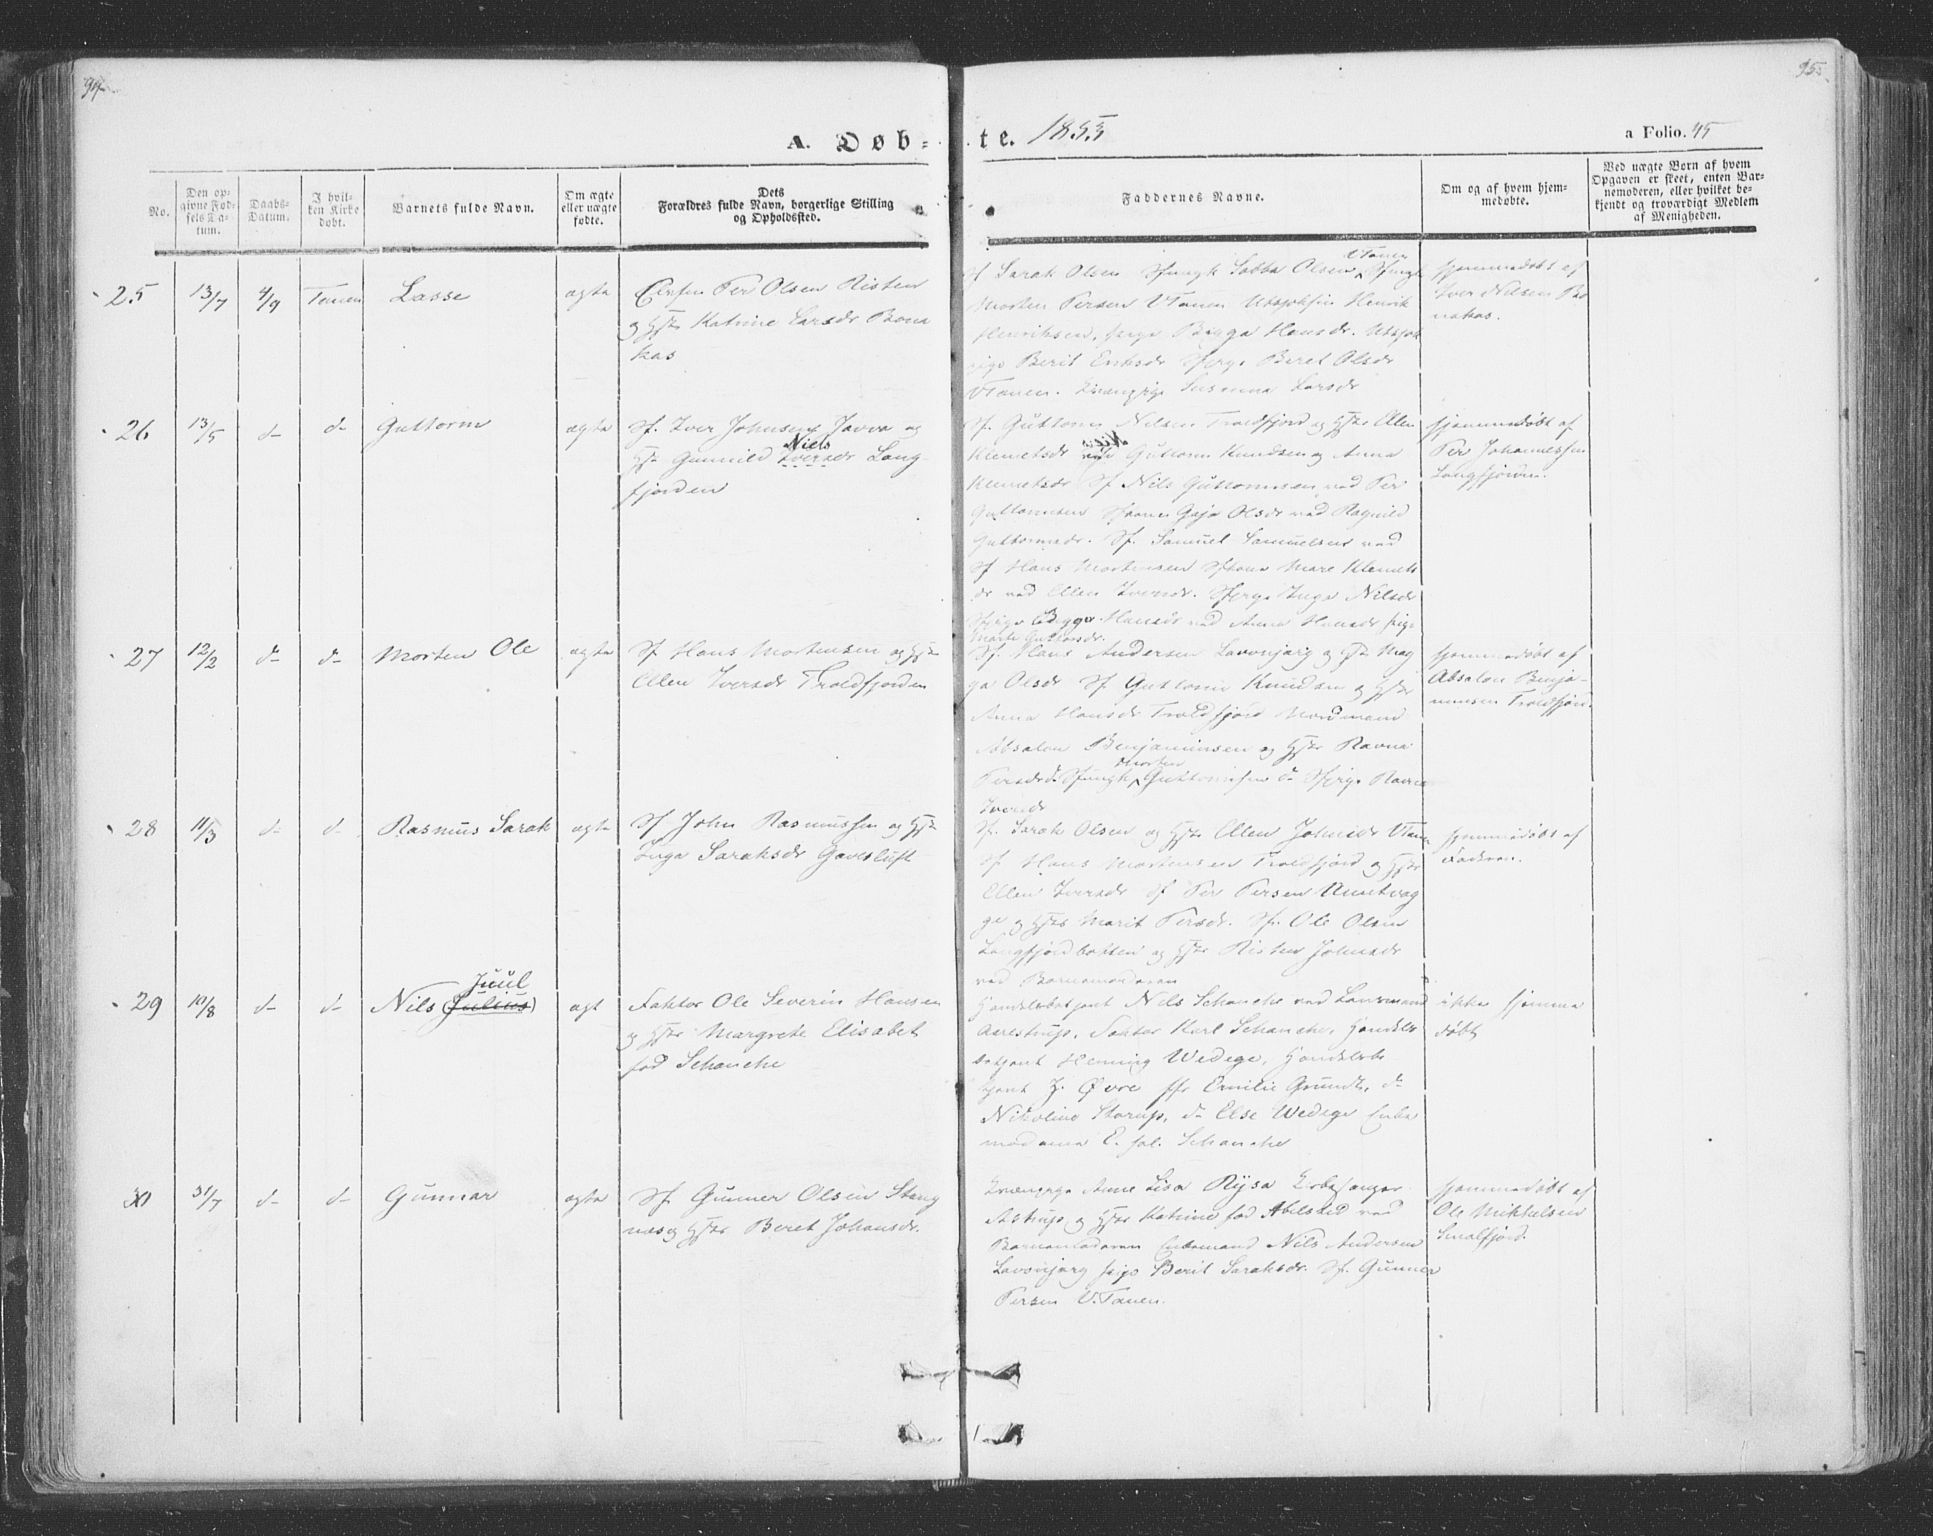 94
95
A. Døb-
te. 1853
a Folio. 45
No.
Den op-
givne Fød-
sels Da-
tum.
Daabs-
Datum.
I hvil-
ken Kirke
døbt.
Barnets fulde Navn.
Om ægte
eller uægte
fødte.
Dets
Forældres fulde Navn, borgerlige Stilling
og Opholdssted.
Faddernes Navne.
Om og af hvem hjem-
medøbte.
Ved uægte Børn af hvem
Opgaven er skeet, enten Bar-
nemoderen, eller hvilket be-
kjendt og troværdigt Medlem
af Menigheden.
25
13/7
4/9
Tanen
Lasse
ægte
Per Olsen Risten
og Hst Katrine Larsdr Bona
kas
Sf Sarak Olsen Sfungk Sabba Olsen
VTanen
Sfungk
Morten Persen VTanen Henrik
Henriksen, Pige Bigga Hansdr.
pige Berit Eriksdr Sfpige Beret Olsdr
VTanen. Susanna Larsdr
hjemmedøbt af
Iver Nilsen Bo
nakas.
26
13/5
d-
d-
Guttorm
ægte
Sf. Iver Johnsen Javva og
Niels
Hst Gunnild Iversdr Lang-
fjorden
Sf. Guttorm Nilsen Troldfjord og Hst Ellen
Niels
Klemetsdr Guttorm Knudsen og Anna
Klemetsdr Sf Nils Guttormsen ved Per
Guttormsen Sfkone Gaja Olsdr ved Ragnild
Guttormsdr. Sf. Samuel Samuelsen ved
Sf Hans Mortensen Sfkone Mare Klemets
dr ved Ellen Iversdr. Sfpige Inga Nilsdr
Sfpige Bigga Hansdr ved Anna Hansdr pige
Marit Guttormsdr.
hjemmedøbt af
Per Johannessen
Langfjorden.
27
12/2
d-
d-
Morten Ole
ægte
Sf Hans Mortensen og Hst
Ellen Iversdr Troldfjorden
Sf. Hans Andersen Lavonjarg og Hst Mag
ga Olsdr Sf Guttorm Knudsen og Hst
Anna Hansdr Troldfjord Nordmand
Absalon Benjaminsen og Hst Ravna
Morten
Persdr d. Sfungk Guttormsen d- Sfpige Ravna
Iversdr
hjemmedøbt af
Absalon Benja-
minsen Troldfjord.
28
11/3
d-
d-
Rasmus Sarak
ægte
Sf John Rasmussen og Hst
Inga Saraksdr Gavesluft
Sf. Sarak Olsen og Hst Ellen Johnsdr VTana
Sf Hans Mortensen Troldfjord og Hst
Ellen Iversdr Sf Per Persen Unntvag
ge og Hst Marit Persdr. Sf. Ole Olsen
Langfjordbotten og Hst Risten Johnsdr
ved Barnemoderen
hjemmedøbt af
Faderen.
29
10/8
d-
d-
Juul
Nils (Julius)
ægt
Faktor Ole Severin Hansen
og Hst Margrete Elisabet
fød Schanche
Handelsbetjent Nils Schanche ved Lensmand
Aarestrup, Faktor Karl Schanche, Handels
betjent Henning Wedege, Handelsbe
tjent J. Øvre jfr Emilie Grundt, d-
Nikoline Storup, d- Else Wedege Enke
madame E. sal. Schanche
ikke hjemme
døbt
30
31/7
d-
d-
Gunnar
ægte
Sf. Gunner Olsen Stang
næs og Hst Beret Johansdr.
Kvænpige Anne Lisa Rysa Kirkesanger
Astrup og Hst Katrine fød Abelsted ved
Barnemoderen Enkemand Nils Andersen
Lavonjarg pige Berit Saraksdr. Sf. Gunner
Persen V.Tanen.
hjemmedøbt af
Ole Mikkelsen
Smalfjord.